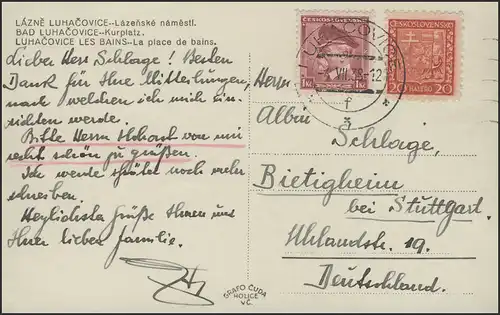 LÁZNĚ LUHAČOVICE--Lázeňské náměstí.
BAD LUHAČOVICE--Kurplatz.
LUHAČOVICE LES BAINS--La place de bains.
Lieber Herr Schlage! Besten
Dank für Ihre Mitteilungen,
nach welchen ich mich ein-
richten werde.
Bitte Herrn von mir
recht schön zu grüßen.
Ich werde später noch mehr
schreiben.
Herzlichste Grüße Ihnen und
Ihrer lieben Familie.
ČESKOSLOVENSKO
1 Kč
ČESKOSLOVENSKO
20 HALÉŘŮ 20
VII
Herrn
Albin
Schlage,
Bietigheim
bei Stuttgart.
Uhlandstr. 19.
Deutschland.
GRAFO ČUDA
HOLICE
V.Č.